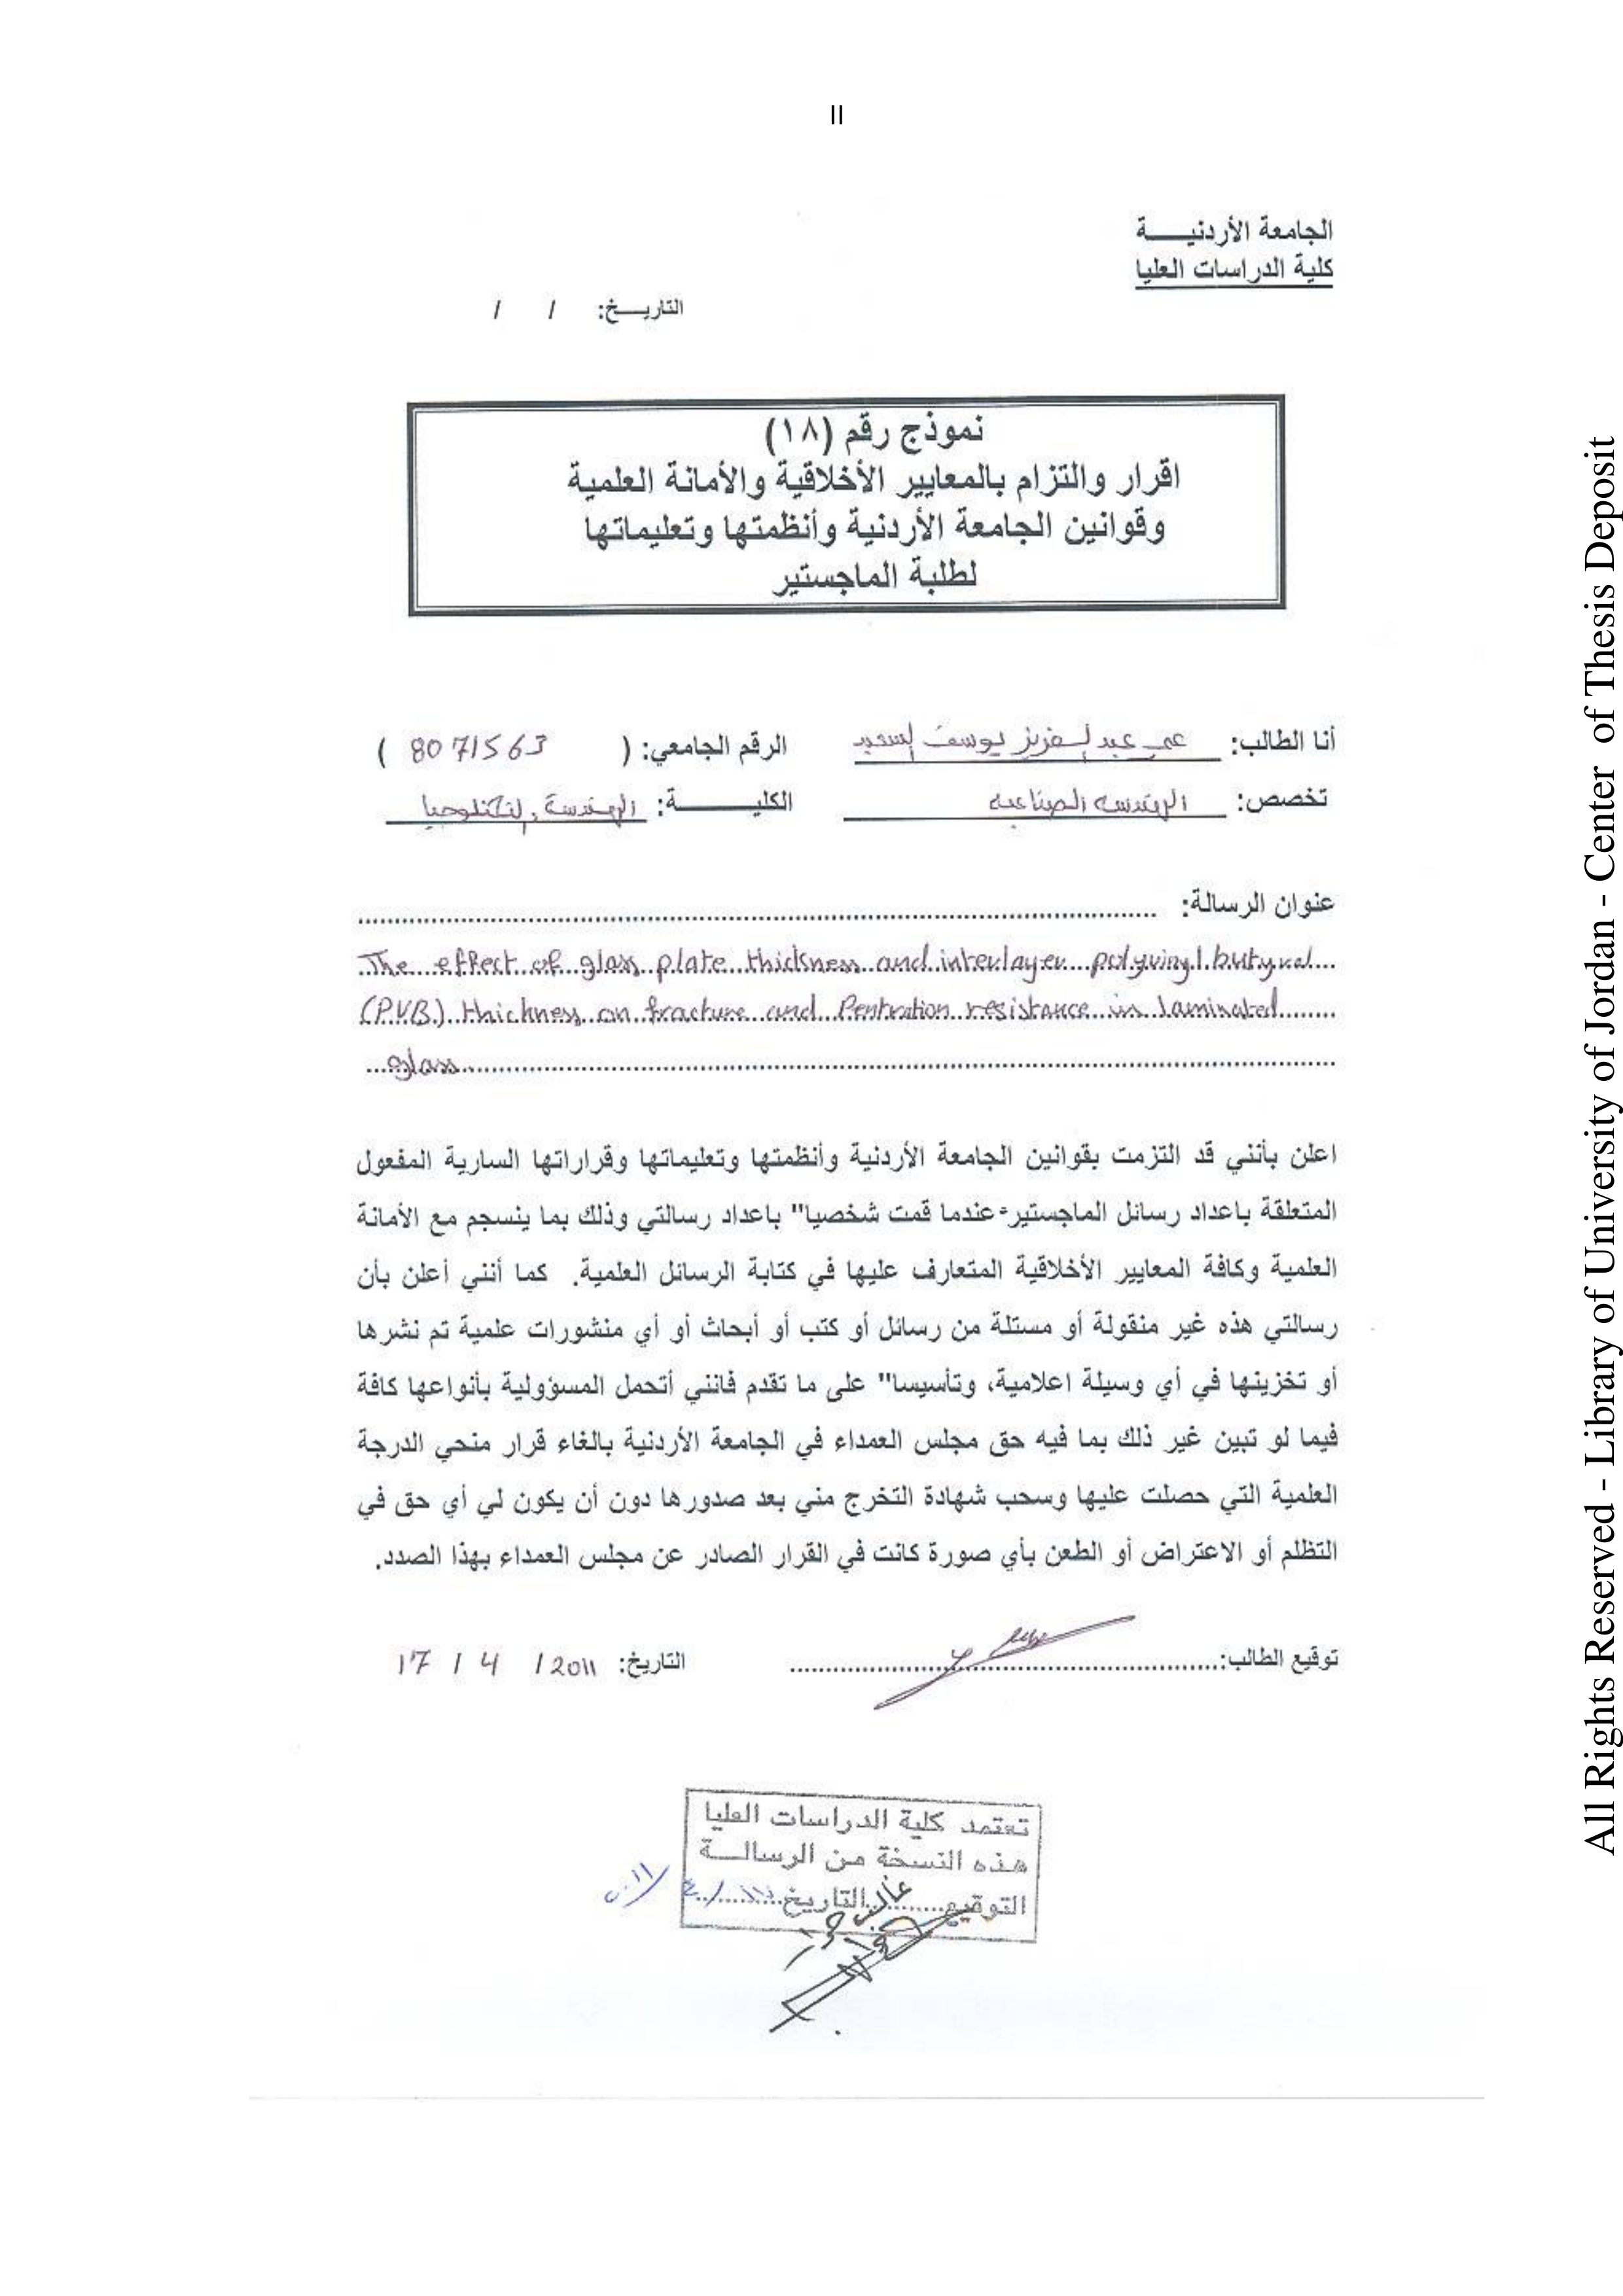 II
الجامعة الأردنيـــــة
كلية الدراسات العليا
التاريــخ: / /
نموذج رقم (١٨)
اقرار والتزام بالمعايير الأخلاقية والأمانة العلمية
وقوانين الجامعة الأردنية وأنظمتها وتعليماتها
لطلبة الماجستير
أنا الطالب: عبد العزيز يوسف السعيد الرقم الجامعي: ( 8071563 )
تخصص: الهندسه الصناعيه الكليـــــــة: الهندسة والتكنلوجيا
عنوان الرسالة:
The effect of glass plate thickness and interlayer polyvinyl butyral
(PVB) thickness on fracture and Pentration resistance in laminated
glass
اعلن بأنني قد التزمت بقوانين الجامعة الأردنية وأنظمتها وتعليماتها وقراراتها السارية المفعول
المتعلقة باعداد رسائل الماجستير عندما قمت شخصيا" باعداد رسالتي وذلك بما ينسجم مع الأمانة
العلمية وكافة المعايير الأخلاقية المتعارف عليها في كتابة الرسائل العلمية. كما أنني أعلن بأن
رسالتي هذه غير منقولة أو مستلة من رسائل أو كتب أو أبحاث أو أي منشورات علمية تم نشرها
أو تخزينها في أي وسيلة اعلامية، وتأسيسا" على ما تقدم فانني أتحمل المسؤولية بأنواعها كافة
فيما لو تبين غير ذلك بما فيه حق مجلس العمداء في الجامعة الأردنية بالغاء قرار منحي الدرجة
العلمية التي حصلت عليها وسحب شهادة التخرج مني بعد صدورها دون أن يكون لي أي حق في
التظلم أو الاعتراض أو الطعن بأي صورة كانت في القرار الصادر عن مجلس العمداء بهذا الصدد.
توقيع الطالب: التاريخ: 17 / 4 / 2011
تعتمد كلية الدراسات العليا
هذه النسخة من الرسالـــة
التوقيع التاريخ
All Rights Reserved - Library of University of Jordan - Center of Thesis Deposit